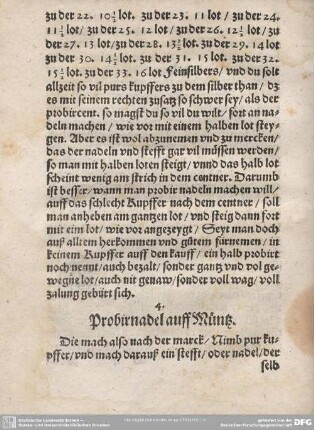 zu der 22. 10½ lot. zu der 23. 11 lot / zu der 24.
11½ lot / zu der 25. 12 lot / zu der 26. 12½ lot / zu
der 27. 13 lot / zu der 28. 13½ lot. zu der 29. 14 lot
zu der 30. 14½ lot. zu der 31. 15 lot. zu der 32.
15½ lot. zu der 33. 16 lot Feinsilbers / vnd du solt
allzeit so vil purs kupffers zu dem silber than / dz
es mit seinem rechten zusatz so schwer sey / als der
probircent. so magst du so vil du wilt / fort an na-
deln machen / wie vor mit einem halben lot stey-
gen. Aber es ist wol abzunemen vnd zu mercken /
das der nadeln vnd stefft gar vil müssen werden /
so man mit halben loten steigt / vnnd das halb lot
scheint wenig am strich in dem centner. Darumb
ist besser / wann man probir nadeln machen will /
auff das schlecht Kupffer nach dem centner / soll
man anheben am gantzen lot / vnd steig dann fort
mit eim lot / wie vor angezeygt / Seyt man doch
auß alltem herkommen vnd gůtem fürnemen / in
keinem Kupffer auff den kauff / ein halb probirt
noch nennt / auch bezalt / sonder gantz vnd vol ge-
wegne lot / auch nit genaw / sonder voll wag / voll
zalung gebürt sich.
4.
Probirnadel auff Müntz.
Die mach also nach der marck / Nimb pur ku-
pffer / vnd mach darauß ein stefft / oder nadel / der
selb
DFG